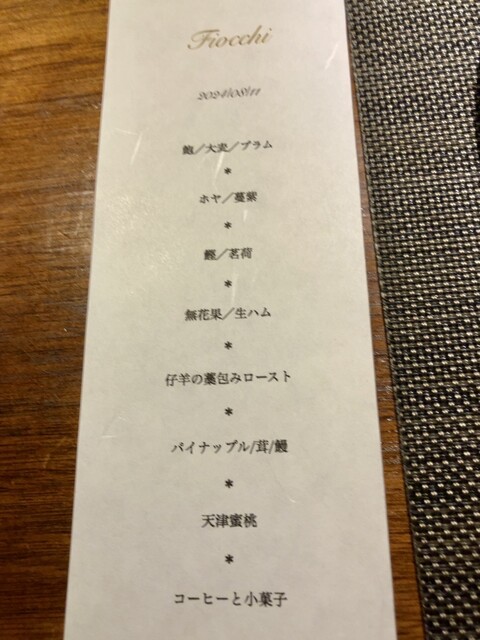 Fiocchi
2024/08/11
鮑／大麦／プラム
*
ホヤ／蔓紫
*
鰹／茗荷
*
無花果／生ハム
*
仔羊の藁包みロースト
*
パイナップル/茸/鰻
*
天津蜜桃
*
コーヒーと小菓子